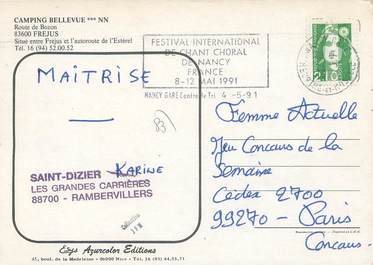 CAMPING BELLEVUE *** NN
Route de Bozon
83600 FREJUS
Situé entre Frejus et l'autoroute de l'Estérel
Tél. 16 (94) 52.00.52
FESTIVAL INTERNATIONAL
DE CHANT CHORAL
DE NANCY
FRANCE
8-12 MAI 1991
NANCY GARE Centre de Tri 4-5.91
2,10
MAÎTRISE
KARINE
SAINT-DIZIER
LES GRANDES CARRIÈRES
88700 - RAMBERVILLERS
Femme Actuelle
Jeu Concours de la
Semaine
Cédex 2700
99270 - Paris
Concours
Azurcolor Editions